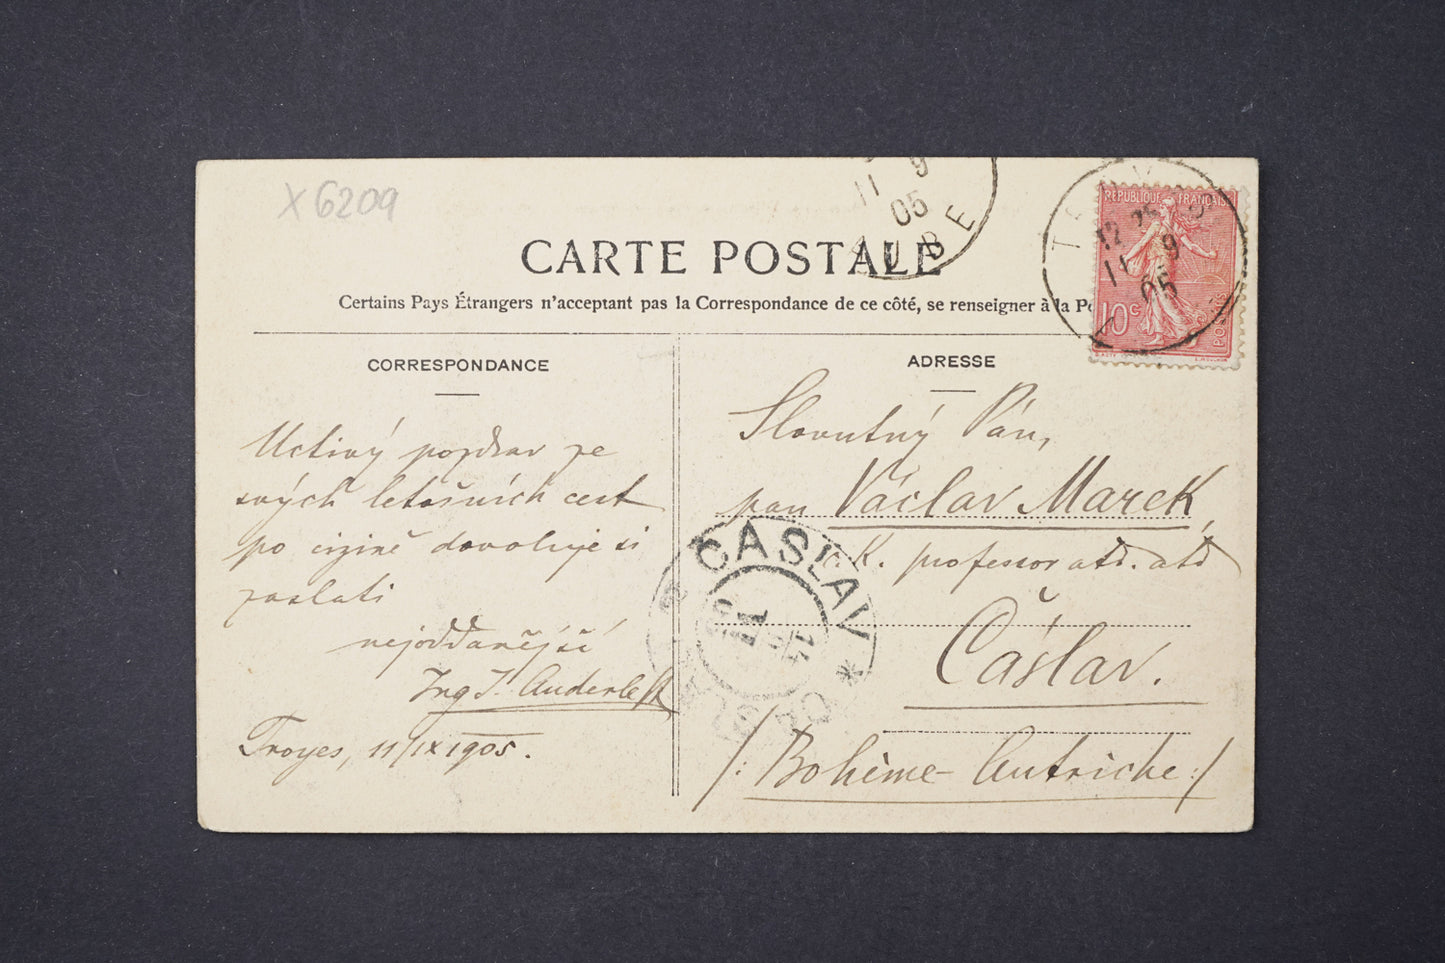 X 6209
11 9
05
AUBE
TROYES
12
11 9
05
REPUBLIQUE FRANÇAISE
10c
POSTES
CARTE POSTALE
Certains Pays Étrangers n'acceptant pas la Correspondance de ce côté, se renseigner à la
CORRESPONDANCE
Uctivý pozdrav ze
svých letošních cest
po cizině dovoluje si
zaslati
nejoddanější
Ing J. Auderlek
Troyes, 11/IX 1905.
ADRESSE
Slovutný Pán,
pan Václav Marek
K. professor atd. atd
Čáslav.
/: Bohème - Autriche :/
ČASLAV